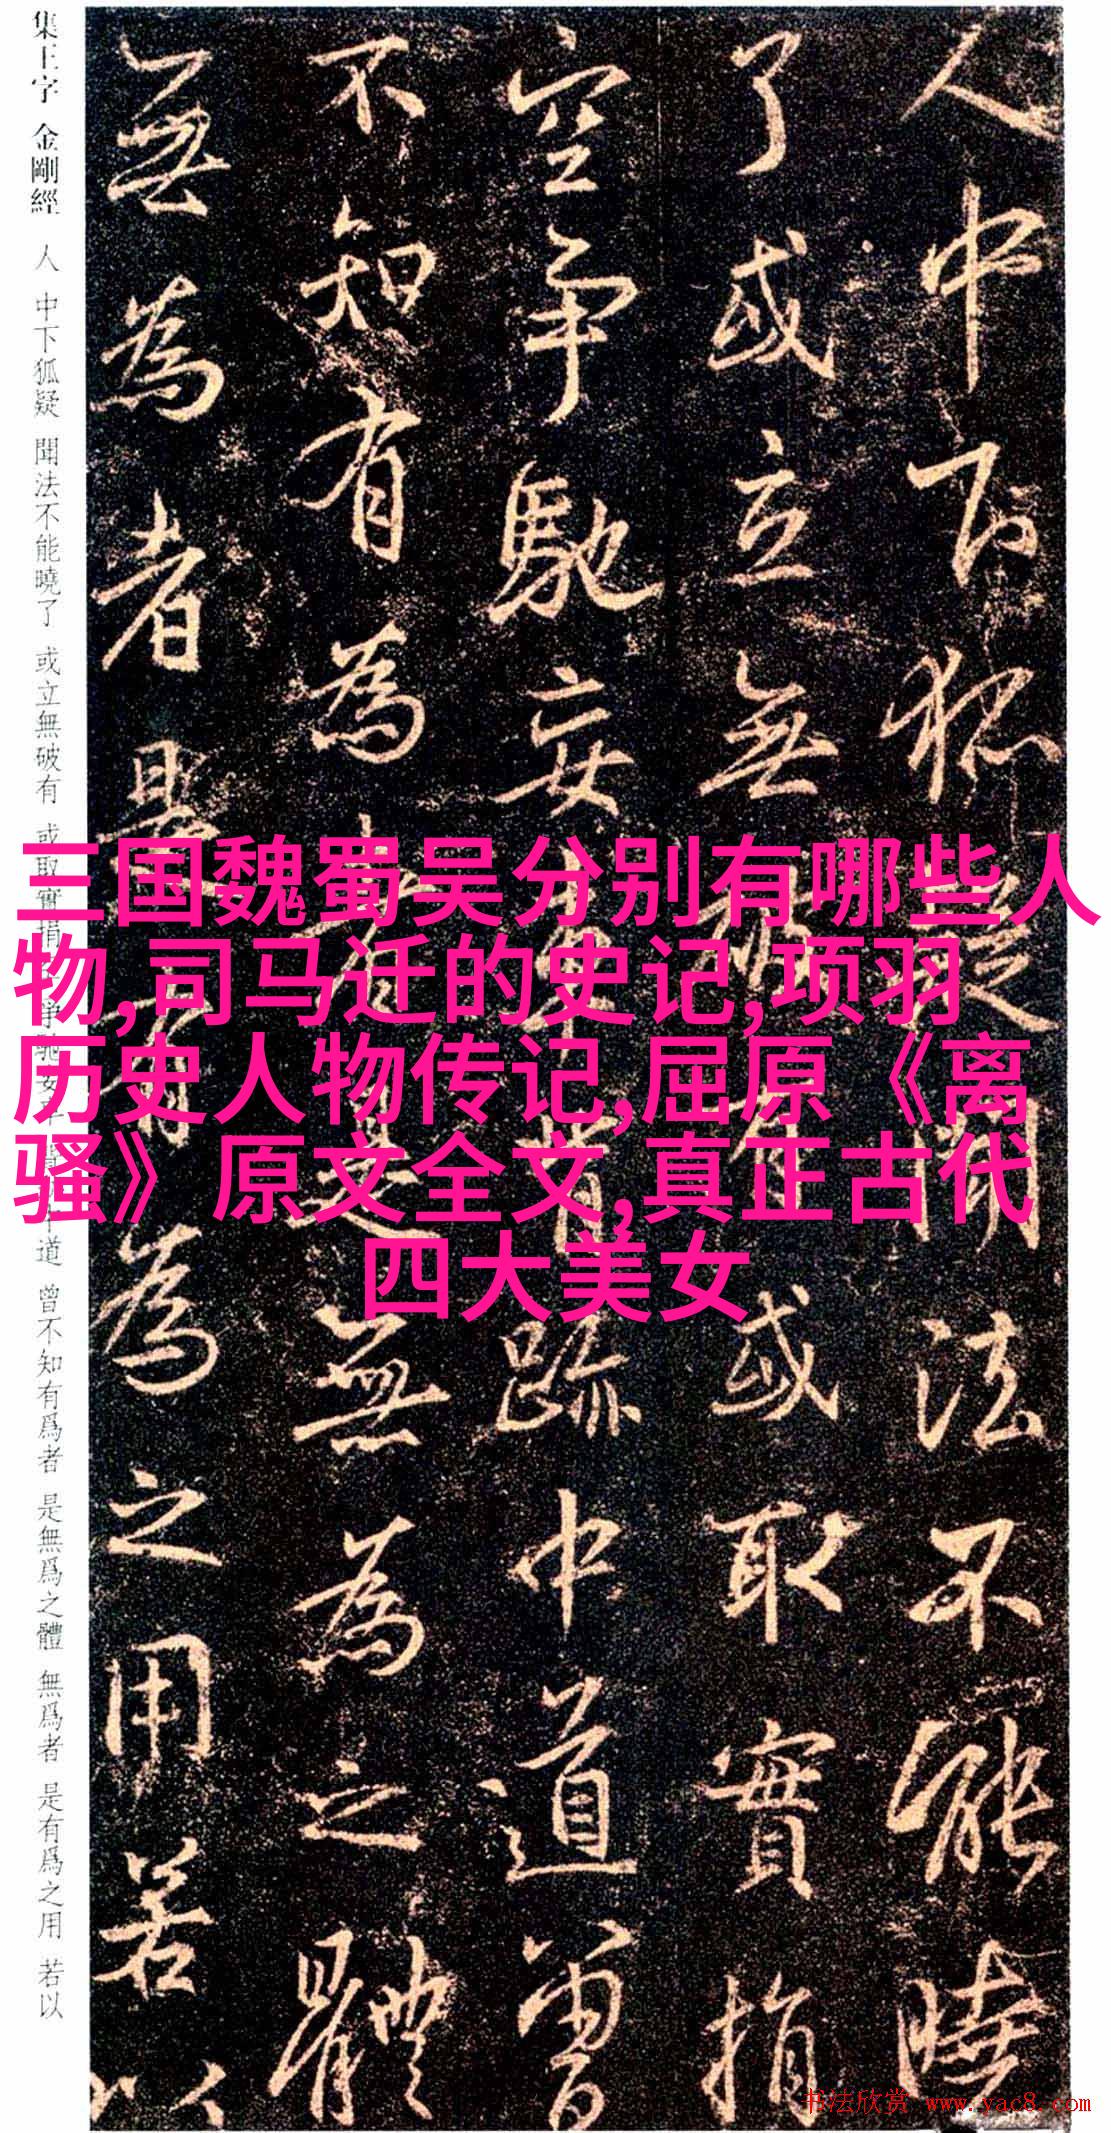 三国魏蜀吴分别有哪些人
物,司马迁的史记,项羽
历史人物传记,屈原《离
骚》原文全文,真正古代
四大美女
人中下狐疑聞法不能曉
了或立無破有或取實捐
空爭馳妄跡中道曾
不知有為者是無為之體
無為者是有為之用若以
集王字 金剛經 人 中下狐疑 聞法不能曉了 或立無破有 或取實捐 爭馳妄 道 曾不知有爲者 是無爲之體 無爲者 是有爲之用 若以
书法欣赏 www.yac8.com